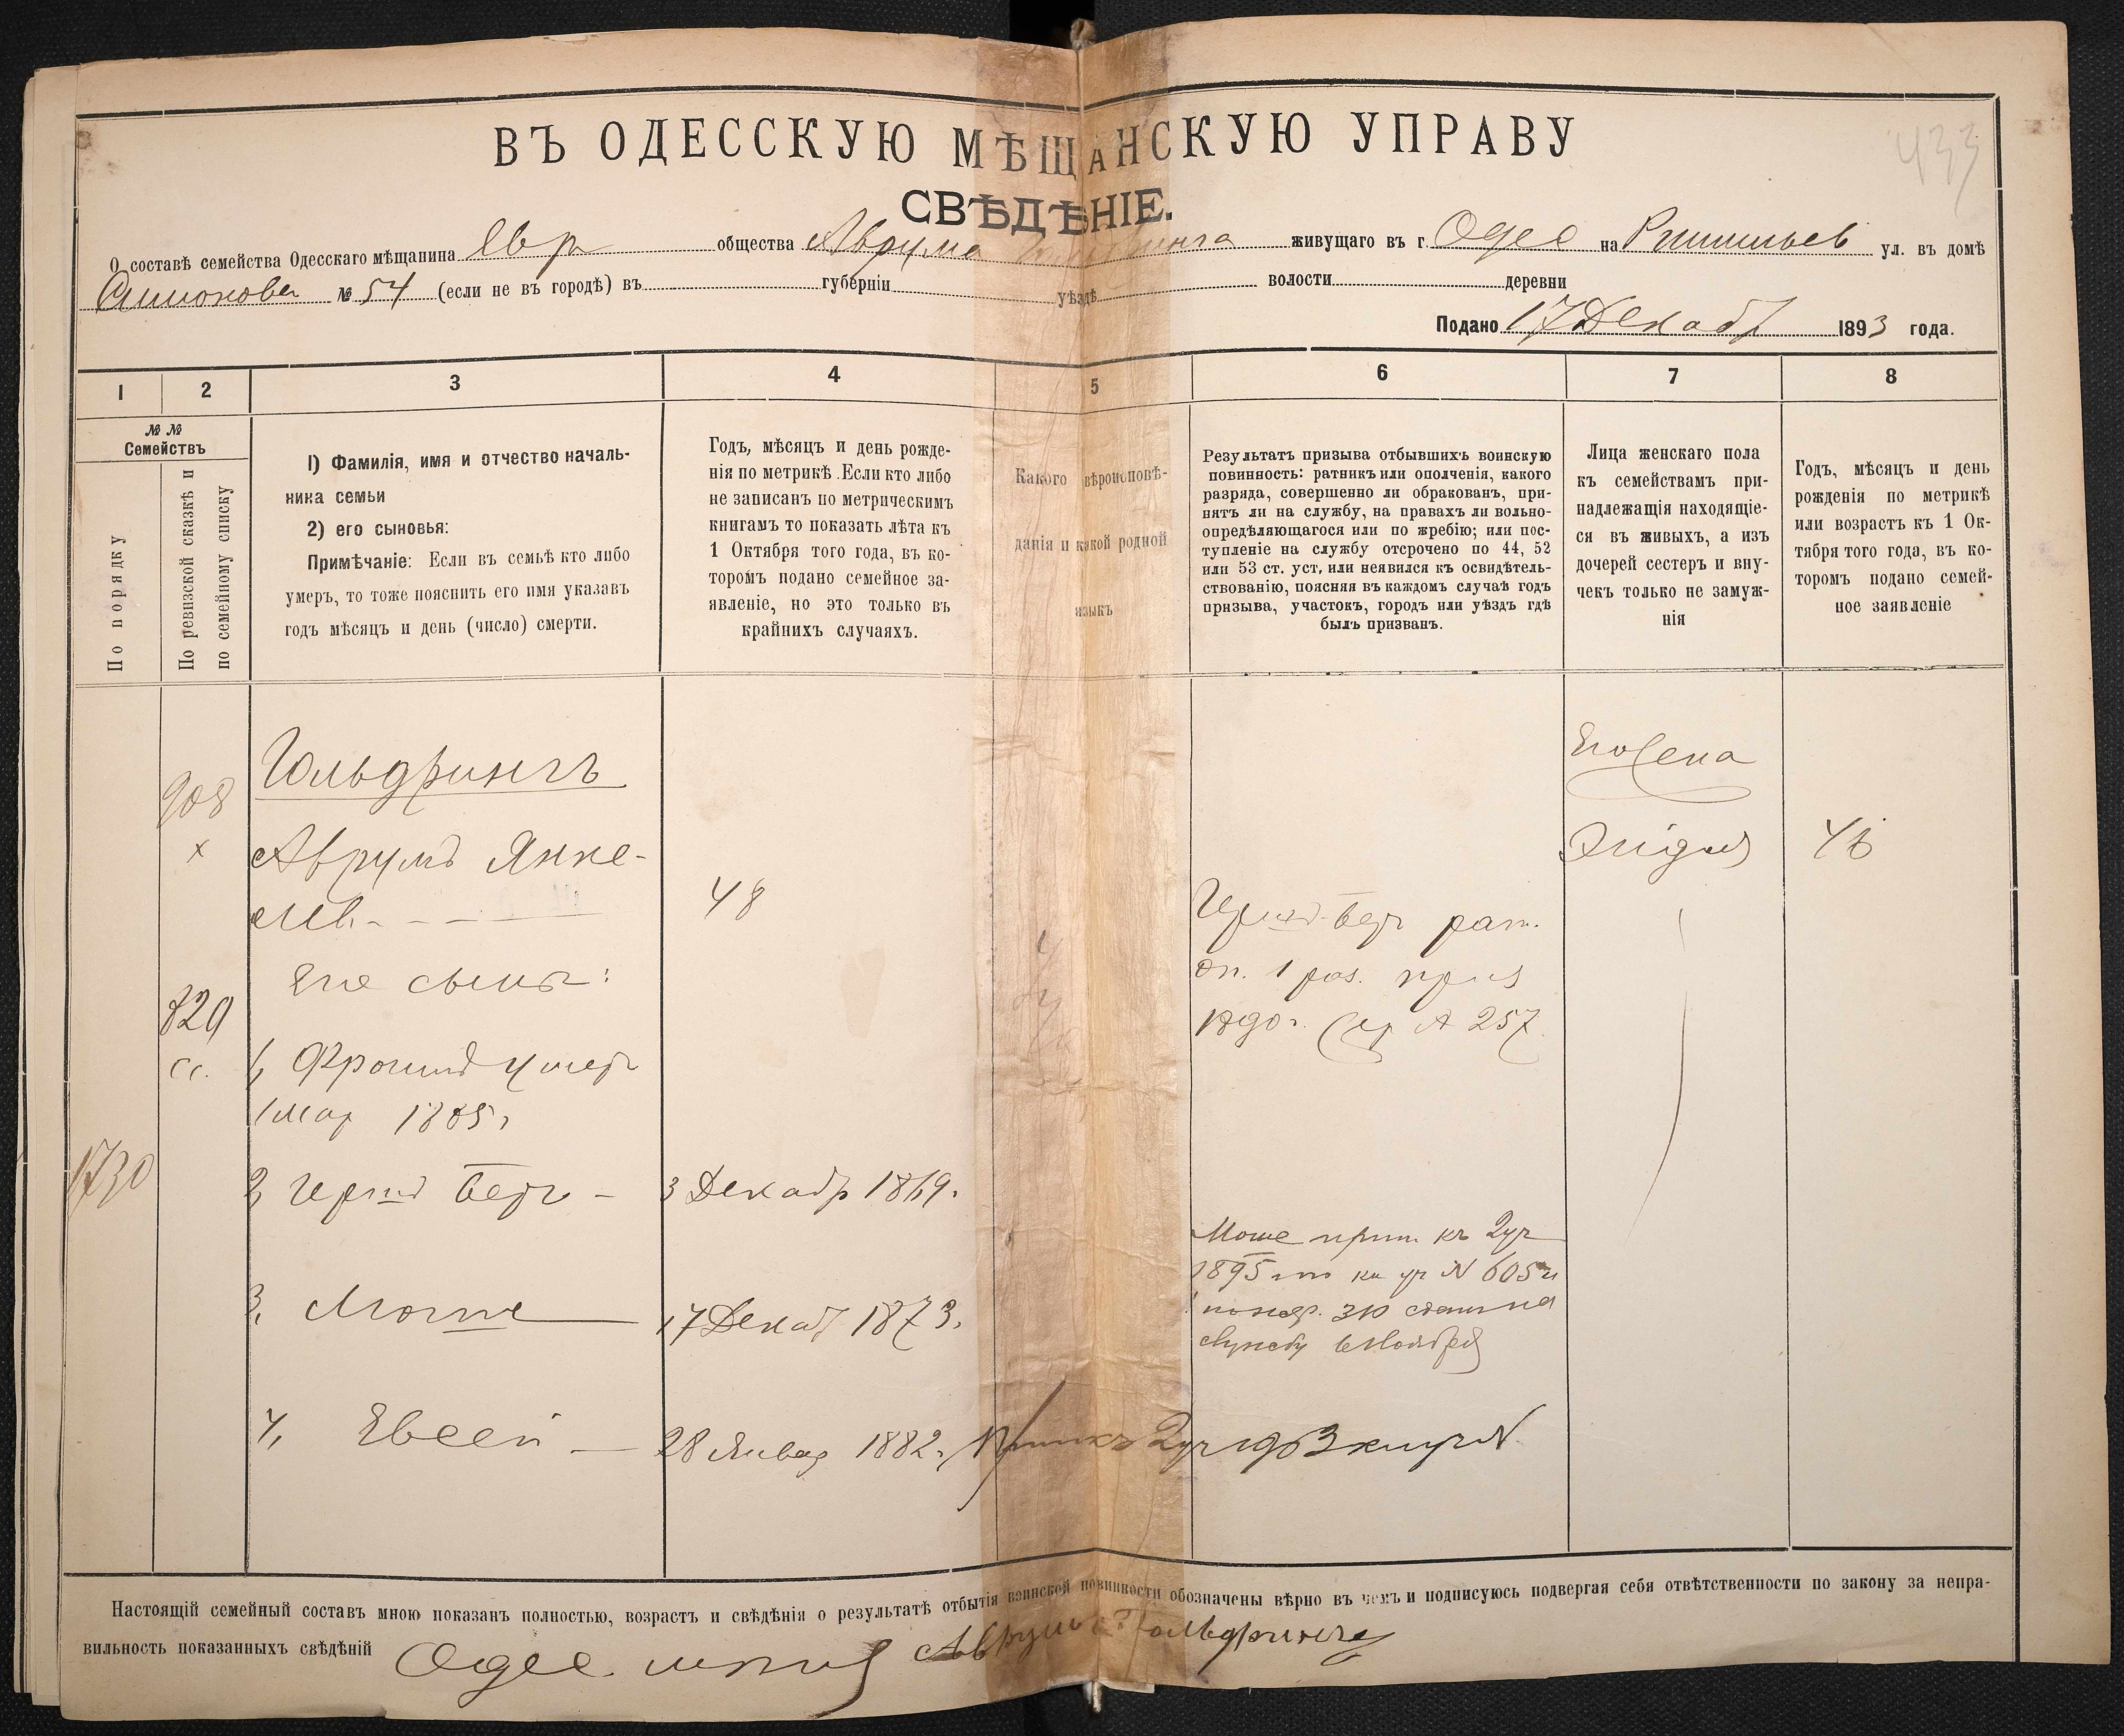 433
ВЪ ОДЕССКУЮ МѢЩАНСКУЮ УПРАВУ
СВѢДѢНІЕ.
О составѣ семейства Одесскаго мѣщанина Евр общества Аврума живущаго въ г. Одес на Ришильев ул. въ домѣ
№ 54 (если не въ городѣ) въ губерніи уѣздѣ волости деревни
Подано 17 Декабр 1893 года.
1 2 3 4 5 6 7 8
№ № Семействъ
По порядку
По ревизской сказкѣ и по семейному списку
1) Фамилія, имя и отчество началь-
ника семьи
2) его сыновья:
Примѣчаніе: Если въ семьѣ кто либо
умеръ, то тоже пояснить его имя указавъ
годъ мѣсяцъ и день (число) смерти.
Годъ, мѣсяцъ и день рожде-
нія по метрикѣ. Если кто либо
не записанъ по метрическимъ
книгамъ то показать лѣта къ
1 Октября того года, въ ко-
торомъ подано семейное за-
явленіе, но это только въ
крайнихъ случаяхъ.
Какого вѣроисповѣ-
данія и какой родной
языкъ
Результатъ призыва отбывшихъ воинскую
повинность: ратникъ или ополченія, какого
разряда, совершенно ли обракованъ, при-
нятъ ли на службу, на правахъ ли вольно-
опредѣляющагося или по жребію; или пос-
тупленіе на службу отсрочено по 44, 52
или 53 ст. уст, или неявился къ освидѣтель-
ствованію, поясняя въ каждомъ случаѣ годъ
призыва, участокъ, городъ или уѣздъ гдѣ
былъ призванъ.
Лица женскаго пола
къ семействамъ при-
надлежащія находящіе-
ся въ живыхъ, а изъ
дочерей сестеръ и вну-
чекъ только не замуж-
нія
Годъ, мѣсяцъ и день
рожденія по метрикѣ
или возрастъ къ 1 Ок-
тября того года, въ ко-
торомъ подано семей-
ное заявленіе
908
х
Гольдрингъ
Аврумъ Янке-
лев.
48
Его жена
46
Его сыны:
820
сс.
1, Фроимъ умер
1 мар 1885 г
1730
2, Герш Бер — 3 Декабр 1869.
Герш-Бер рат.
оп. 1 раз. приз
1890 г. А 257
3, Мошe 17 Декаб 1873.
Моше прип. къ 2 уч
1895 № 605 и
жереб. 310
службу в Ноябрѣ
4, Евсей — 28 Январ 1882 г, Прип къ 2 уч 1903 №
Настоящій семейный составъ мною показанъ полностью, возрастъ и свѣдѣнія о результатѣ отбытія воинской повинности обозначены вѣрно въ чемъ и подписуюсь подвергая себя отвѣтственности по закону за непра-
вильность показанныхъ свѣдѣній Одес Аврумъ Гольдрингъ